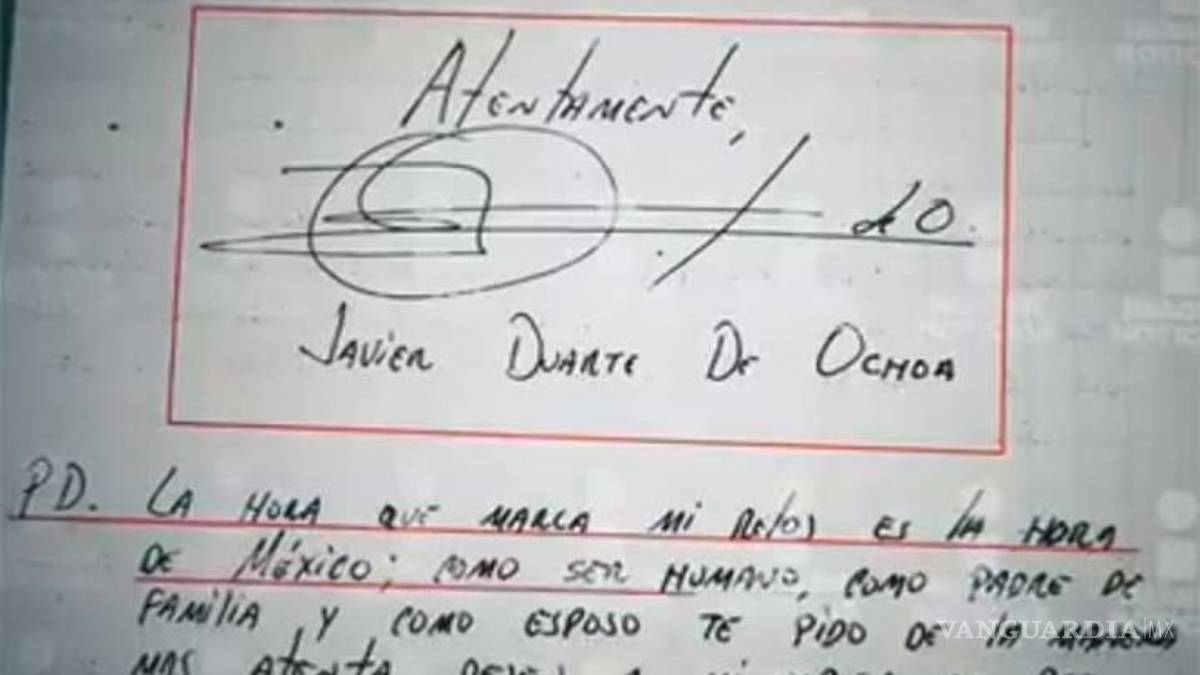 Atentamente,
de O.
Javier Duarte De Ochoa
PD. La hora que marca mi reloj es la hora
de México; como ser humano, como padre de
familia y como esposo te pido de la manera
mas atenta dejes a mi
VANGUARDIA MX